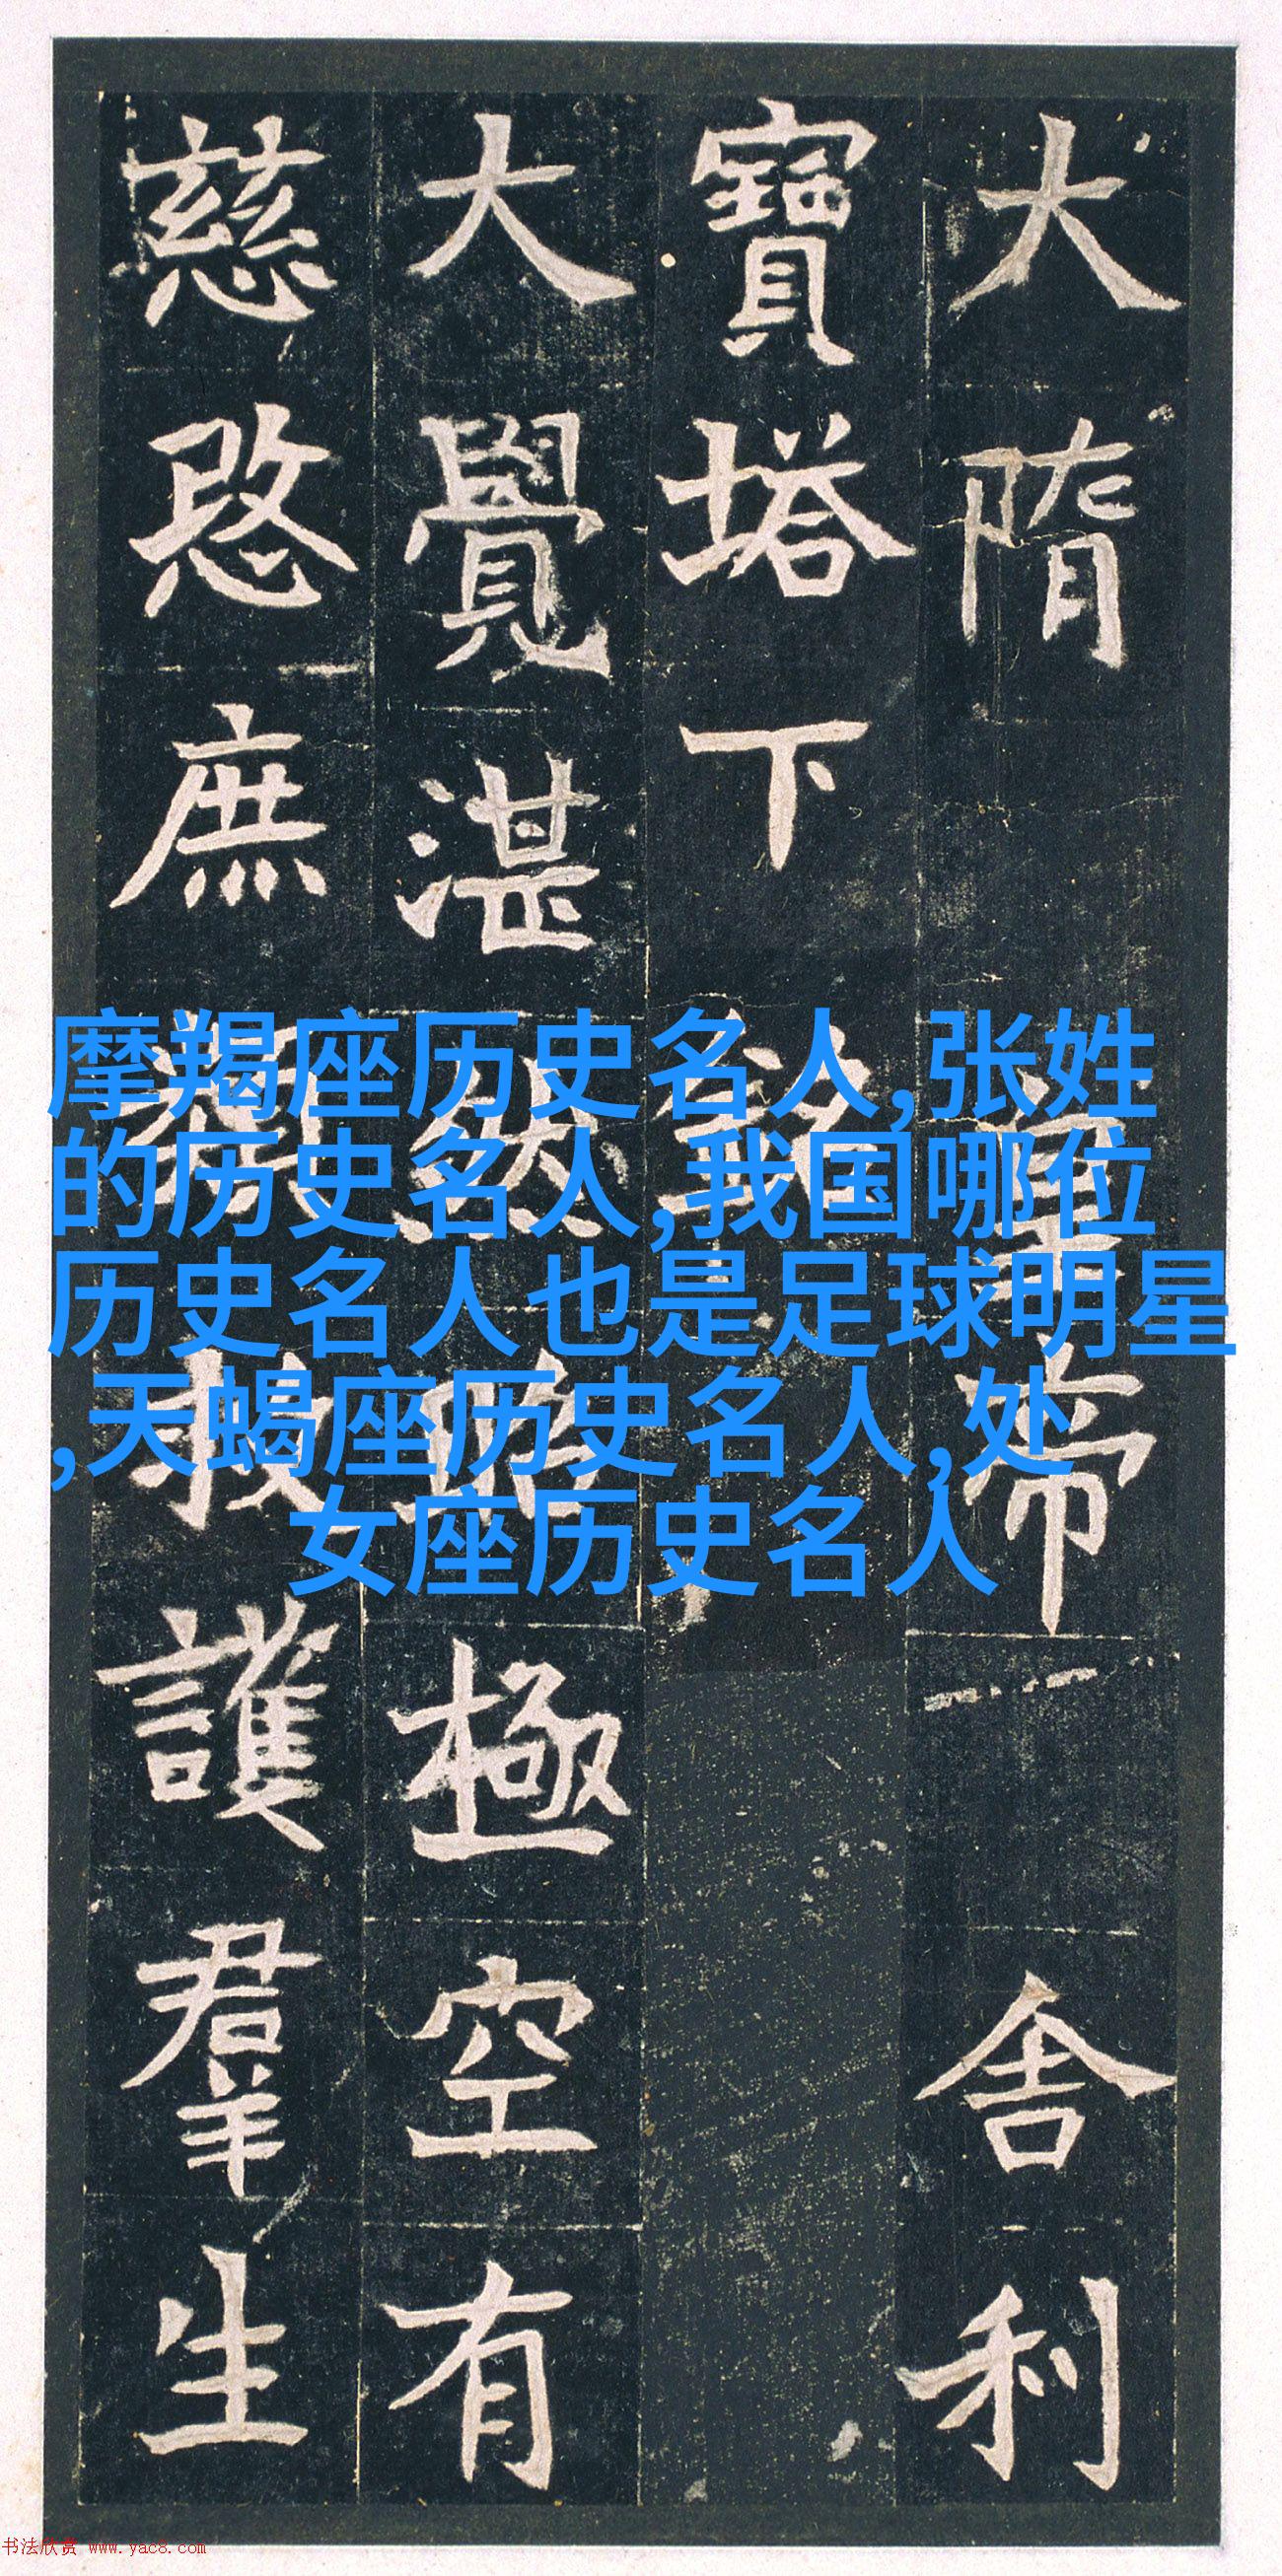 大隋皇帝舍利
寶塔下銘
大覺湛然昭極空有
慈愍庶類救護羣生
摩羯座历史名人,张姓
的历史名人,我国哪位
历史名人也是足球明星
,天蝎座历史名人,处
女座历史名人
书法欣赏 www.yac8.com